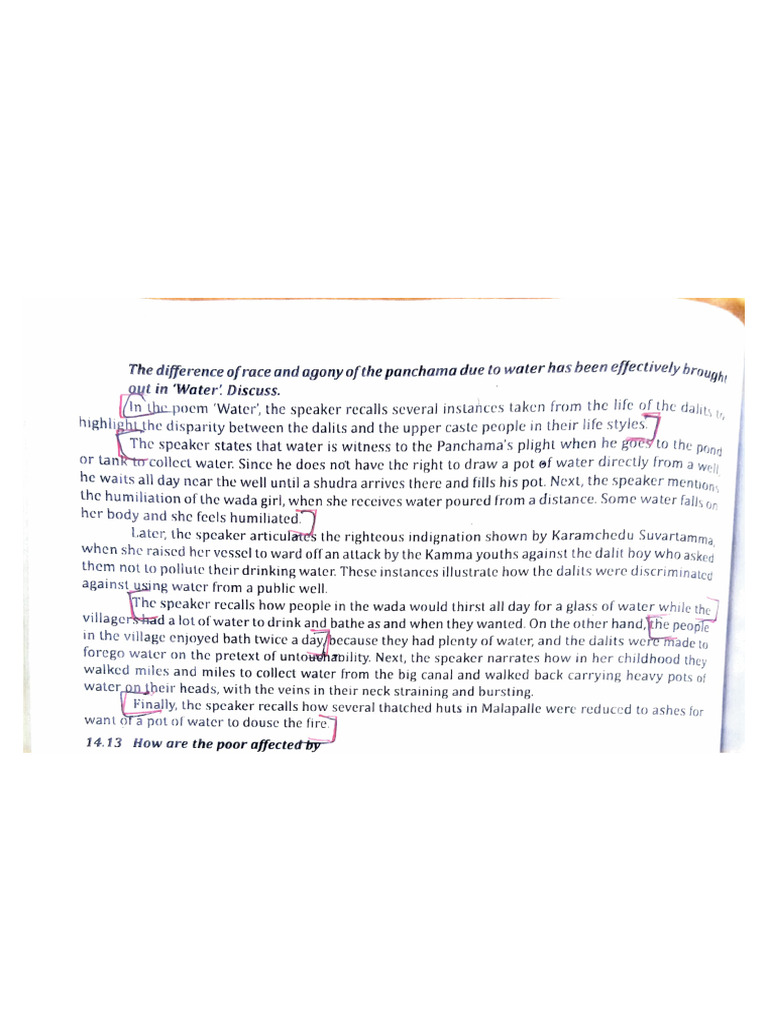 The difference of race and agony of the panchama due to water has been effectively brought
out in 'Water'. Discuss.
In the poem 'Water', the speaker recalls several instances taken from the life of the dalits to
highlight the disparity between the dalits and the upper caste people in their life styles.
The speaker states that water is witness to the Panchama's plight when he goes to the pond
or tank to collect water. Since he does not have the right to draw a pot of water directly from a well
he waits all day near the well until a shudra arrives there and fills his pot. Next, the speaker mentions
the humiliation of the wada girl, when she receives water poured from a distance. Some water falls on
her body and she feels humiliated.
Later, the speaker articulates the righteous indignation shown by Karamchedu Suvartamma,
when she raised her vessel to ward off an attack by the Kamma youths against the dalit boy who asked
them not to pollute their drinking water. These instances illustrate how the dalits were discriminated
against using water from a public well.
The speaker recalls how people in the wada would thirst all day for a glass of water while the
villagers had a lot of water to drink and bathe as and when they wanted. On the other hand, the people
in the village enjoyed bath twice a day, because they had plenty of water, and the dalits were made to
forego water on the pretext of untouchability. Next, the speaker narrates how in her childhood they
walked miles and miles to collect water from the big canal and walked back carrying heavy pots of
water on their heads, with the veins in their neck straining and bursting.
Finally, the speaker recalls how several thatched huts in Malapalle were reduced to ashes for
want of a pot of water to douse the fire.
14.13 How are the poor affected by